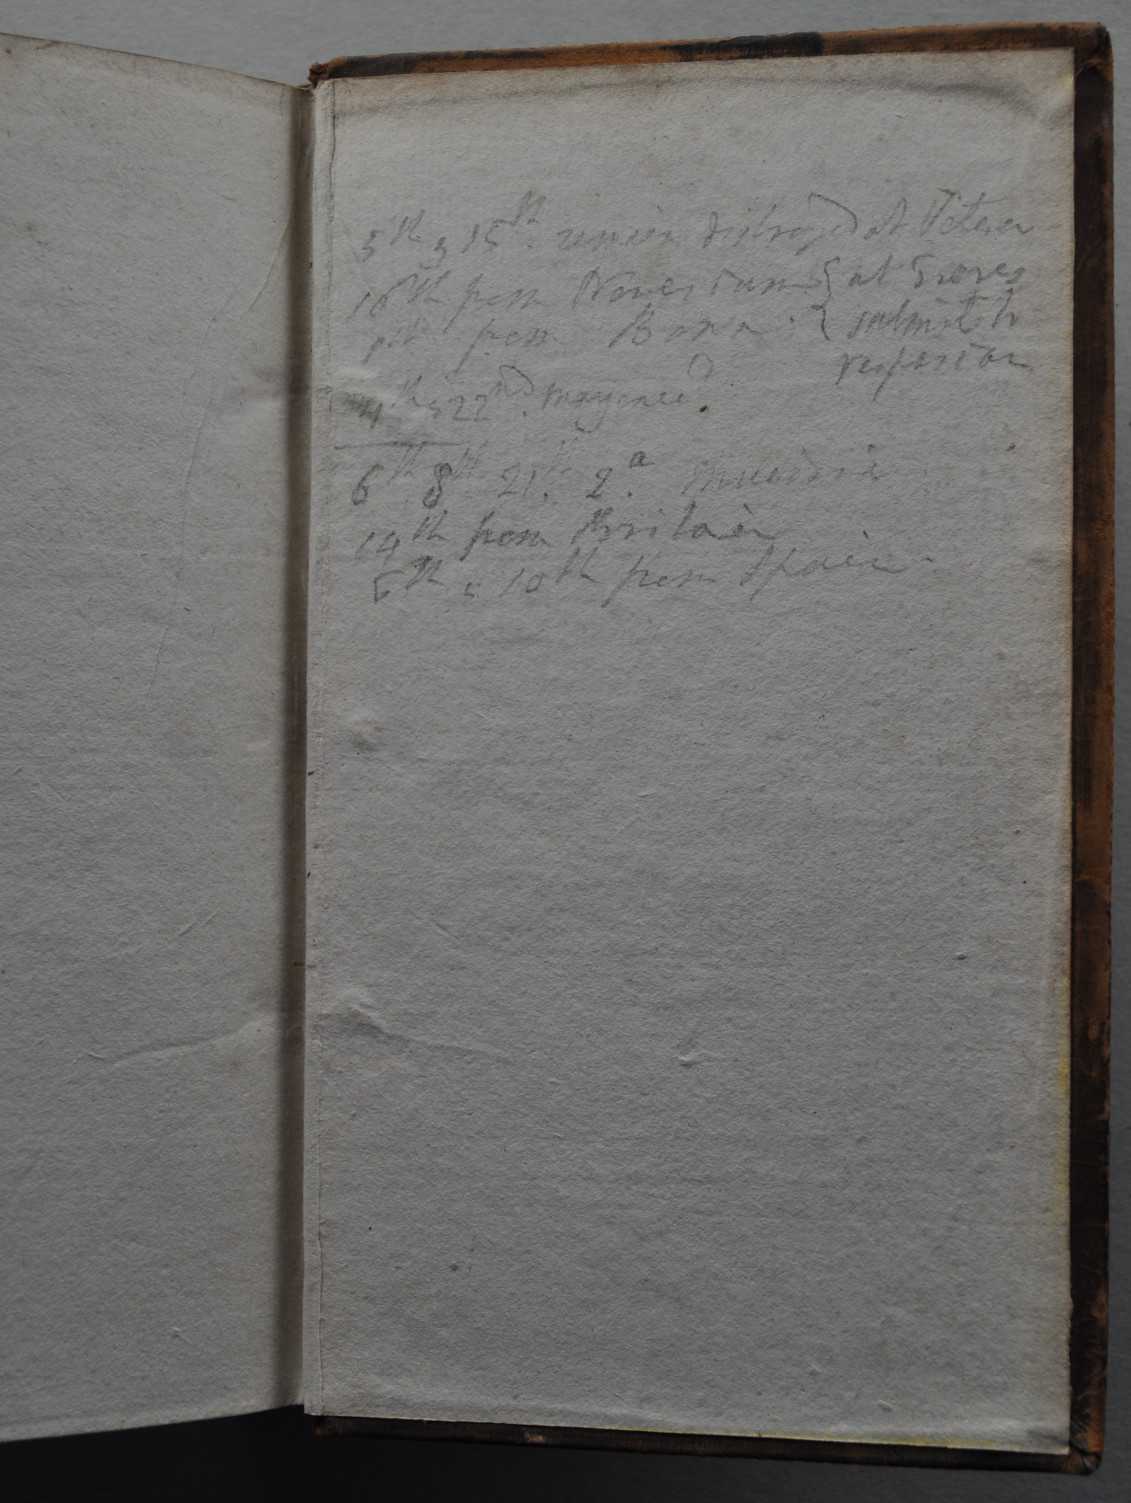 5th & 15th remain destroyed at Vetera
16th from Novesium { at Treves
1st from Bonn { submit to
Vespasian
4th & 22nd Mayence
6th 8th 21. 2.a
14th from Britain
6th & 10th from Spain